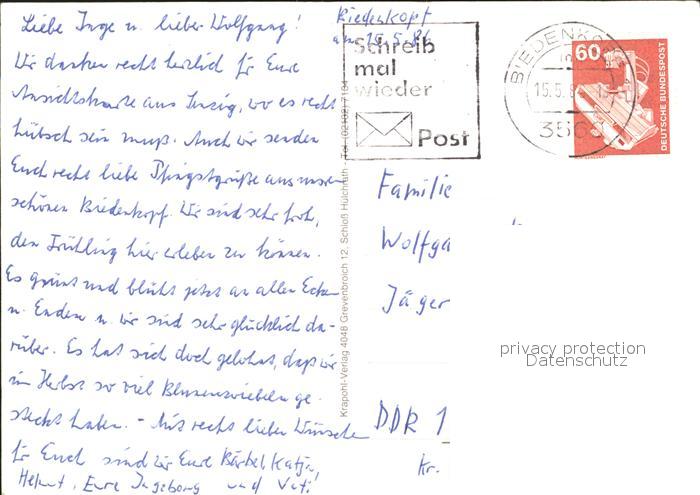 Biedenkopf
am 15.5.86
Liebe Inge u. lieber Wolfgang!
Wir danken recht herzlich für Eure
Ansichtskarte aus Sinzig, wo es recht
hübsch sein muß. Auch wir senden
Euch recht liebe Pfingstgrüße aus unserem
schönen Biedenkopf. Wir sind sehr froh,
den Frühling hier erleben zu können.
Es grünt und blüht jetzt an allen Ecken
u. Enden u. wir sind sehr glücklich da-
rüber. Es hat sich doch gelohnt, daß wir
im Herbst so viel Blumenzwiebeln ge-
steckt haben. - Mit recht lieben Wünschen
für Euch sind wir Eure Bärbel, Katja,
Helmut, Eure Ingeborg und Vati
Krapohl-Verlag 4048 Grevenbroich 12, Schloß Hülchrath
Schreib
mal
wieder
Post
BIEDENKOPF
15.5.8
3560
60
DEUTSCHE BUNDESPOST
Familie
Wolfga
Jäger
DDR 1
Kr.
privacy protection
Datenschutz